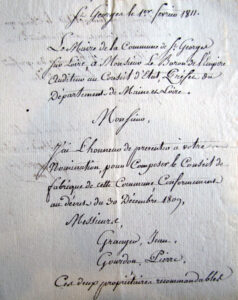 St Georges le 1er fevrier 1811.
Le Maire de la Commune de St Georges
sur Loire, à Monsieur Le Baron de l'Empire
Auditeur au Conseil d'Etat Préfet du
Département de Maine et Loire.
Monsieur,
J'ai L'honneur de presenter a votre
Nomination, pour Composer le Conseil de
fabrique de cette Commune Conformement
au décret du 30 Décembre 1809,
Messieurs
Granger, Jean.
Gourdon, Pierre.
Ces deux propriétaires recommandables